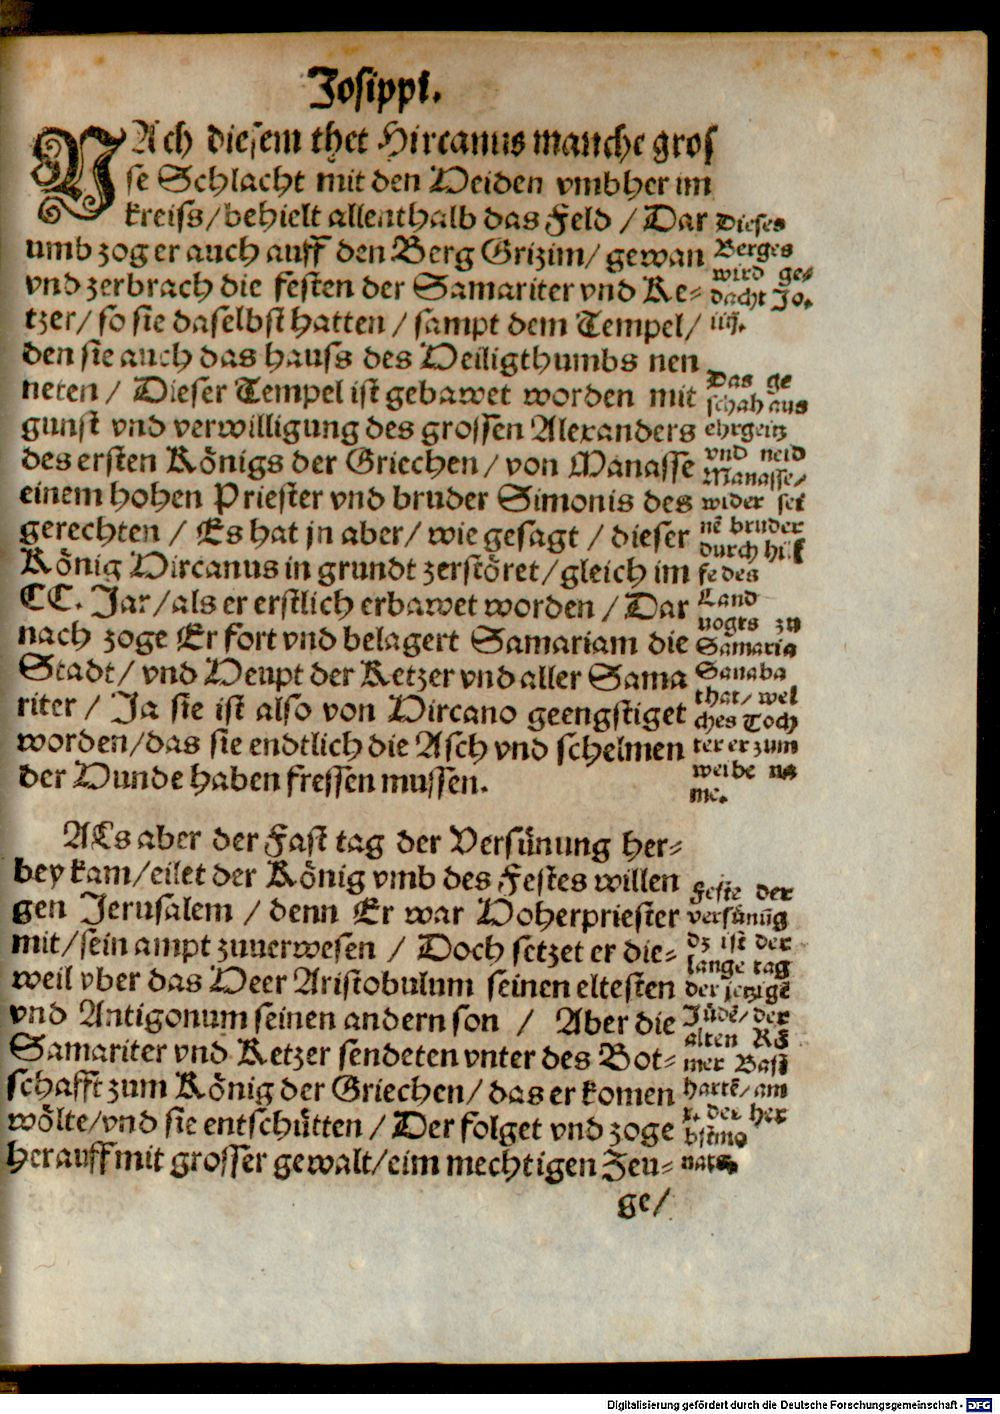 Josippi.
NAch diesem thet Hircanus manche gros
se Schlacht mit den Heiden vmbher im
kreiss/behielt allenthalb das Feld / Dar
umb zog er auch auff den Berg Grizim/ gewan
vnd zerbrach die festen der Samariter vnd Ke⸗
tzer/ so sie daselbst hatten / sampt dem Tempel/
den sie auch das hauss des Heiligthumbs nen
neten / Dieser Tempel ist gebawet worden mit
gunst vnd verwilligung des grossen Alexanders
des ersten Königs der Griechen/ von Manasse
einem hohen Priester vnd bruder Simonis des
gerechten / Es hat jn aber/ wie gesagt / dieser
König Hircanus in grundt zerstöret/gleich im
CC. Jar/als er erstlich erbawet worden / Dar
nach zoge Er fort vnd belagert Samariam die
Stadt/ vnd Heupt der Ketzer vnd aller Sama
riter / Ja sie ist also von Hircano geengstiget
worden/das sie endtlich die Asch vnd schelmen
der Hunde haben fressen mussen.
ALs aber der Fast tag der Versünung her⸗
bey kam/eilet der König vmb des Festes willen
gen Jerusalem / denn Er war Hoherpriester
mit/sein ampt zuuerwesen / Doch setzet er die⸗
weil vber das Heer Aristobulum seinen eltesten
vnd Antigonum seinen andern son / Aber die
Samariter vnd Ketzer sendeten vnter des Bot⸗
schafft zum König der Griechen/ das er komen
wölte/vnd sie entschütten / Der folget vnd zoge
herauff mit grosser gewalt/eim mechtigen Zeu⸗
ge/
Dieses
Berges
wird ge⸗
dacht Jo.
iiij.
Das ge
schah aus
ehrgeitz
vnd neid
Manasse/
wider sei
nē bruder
durch hilf
fe des
Land
vogts zu
Samaria
Sanaba
that/ wel
ches Toch
ter er zum
weibe na
me.
Feste der
versünūg
dz ist der
lange tag
der jetzigē
Jüdē/ der
alten Rö
mer Bast
hartē/ am
x. der her
bstmo
nats.
Digitalisierung gefördert durch die Deutsche Forschungsgemeinschaft - DFG